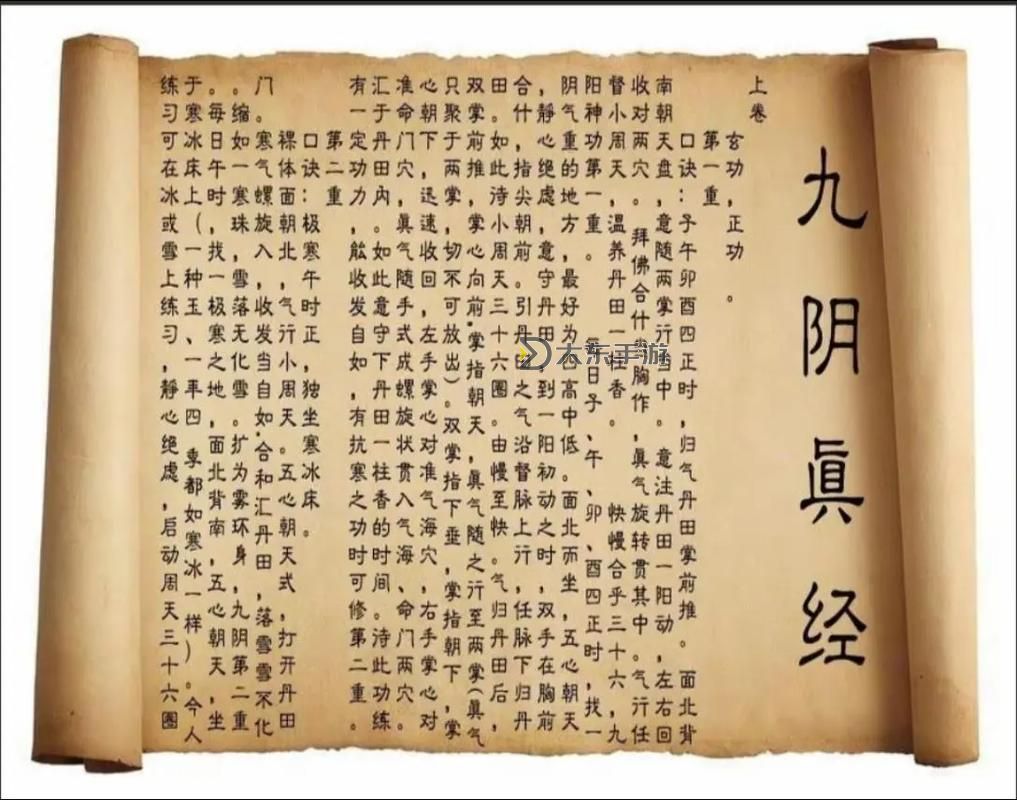 九阴眞经
上卷
玄功,正功。
第一重
口诀:子午卯酉四正时,归气丹田掌前推。面北背
南朝天盘,意随两掌行当中。意注丹田一阳动,左右回
收对两穴。拜佛合什当胸作,眞气旋转贯其中。气行任
督小周天,温养丹田一柱香。快慢合乎三十六,九
阳神功第一重。每日子、午、卯、酉四正时,找一
阴气重的地方,最好为四高中低。面北而坐,五心朝天
,静心绝虑,意守丹田,到一阳初动之时,双手在胸前
合什,指尖朝前。引丹田之气沿督脉上行,任脉下归丹
田。如此待小周天三十六圈。由慢至快。气归丹田后,
双掌前推,掌心向前,掌指朝天,眞气随之行至两掌(眞气
只聚于两掌,切不可放出)。双掌指下垂,掌指朝下,掌
心朝下,迅速收回,左手掌心对准气海穴,右手掌心对
准命门穴,眞气随手式成螺旋状贯入气海、命门两穴。
汇于丹田内。如此意守下丹田一柱香的时间。待此功练
有一定功力,能收发自如,有抗寒之功时可修第二重。
第二重
口诀:极寒午时正,独坐寒冰床。
裸体面朝北,气行小周天。五心朝天式,打开丹田
门。寒气螺旋入,收发当自如,合和汇丹田,落雪雪不化
。缩如一寒珠,雪落无化雪。扩为雾环身,九阴第二重
。每日午时,找一极寒之地,面北背南,五心朝天,坐
于寒冰床上(一种玉、一年四季都如寒冰一样)。今人
练习可在冰或雪上练习,静心绝虑,启动周天三十六圈
大东手游